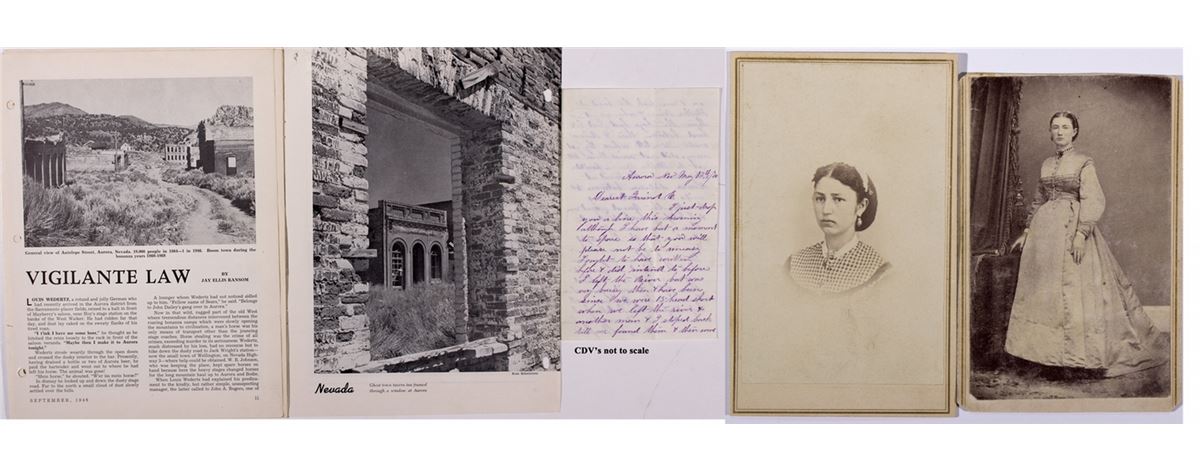 General view of Antelope Street, Aurora, Nevada. 10,000 people in 1864—1 in 1946. Boom town during the
bonanza years 1860-1868
VIGILANTE LAW
BY
JAY ELLIS RANSOM
LOUIS WEDERTZ, a rotund and jolly German who
had recently arrived in the Aurora district from
the Sacramento placer fields, reined to a halt in front
of Mayberry's saloon, near Hoy's stage station on the
banks of the West Walker. He had ridden far that
day, and dust lay caked on the sweaty flanks of his
tired roan.
"I t'ink I have me some beer," he thought as he
hitched the reins loosely to the rack in front of the
saloon veranda. "Maybe then I make it to Aurora
tonight."
Wedertz strode smartly through the open doors
and crossed the dusky interior to the bar. Presently,
having drained a bottle or two of Aurora beer, he
paid the bartender and went out to where he had
left his horse. The animal was gone!
"Mein horse," he shouted. "W'er ist mein horse?"
In dismay he looked up and down the dusty stage
road. Far to the north a small cloud of dust slowly
settled over the hills.
SEPTEMBER, 1946
A lounger whom Wedertz had not noticed sidled
up to him. "Fellow name of Sears," he said. "Belongs
to John Dailey's gang over to Aurora."
Now in that wild, rugged part of the old West
where tremendous distances intervened between the
roaring bonanza camps which were slowly opening
the mountains to civilization, a man's horse was his
only means of transport other than the jouncing
stage coaches. Horse stealing was the crime of all
crimes, exceeding murder in its seriousness. Wedertz,
much distressed by his loss, had no recourse but to
hike down the dusty road to Jack Wright's station—
now the small town of Wellington, on Nevada High-
way 3—where help could be obtained. W. R. Johnson,
who was keeping the place, kept spare horses on
hand because here the heavy stages changed horses
for the long mountain haul up to Aurora and Bodie.
When Louis Wedertz had explained his predica-
ment to the kindly, but rather simple, unsuspecting
manager, the latter called to John A. Rogers, one of
11
Nevada
Ghost town ruins are framed
through a window at Aurora
Aurora Nev May
Dearest Friend
I just drop
you a line this evening
although I have but a moment
to spare so that you will
please not be to uneasy
I ought to have written
before I did intend to before
I left the River but was
so busy then & have been
since I've were 13 head short
when we left the river &
another man & I staped back
till we found them & then
CDV's not to scale